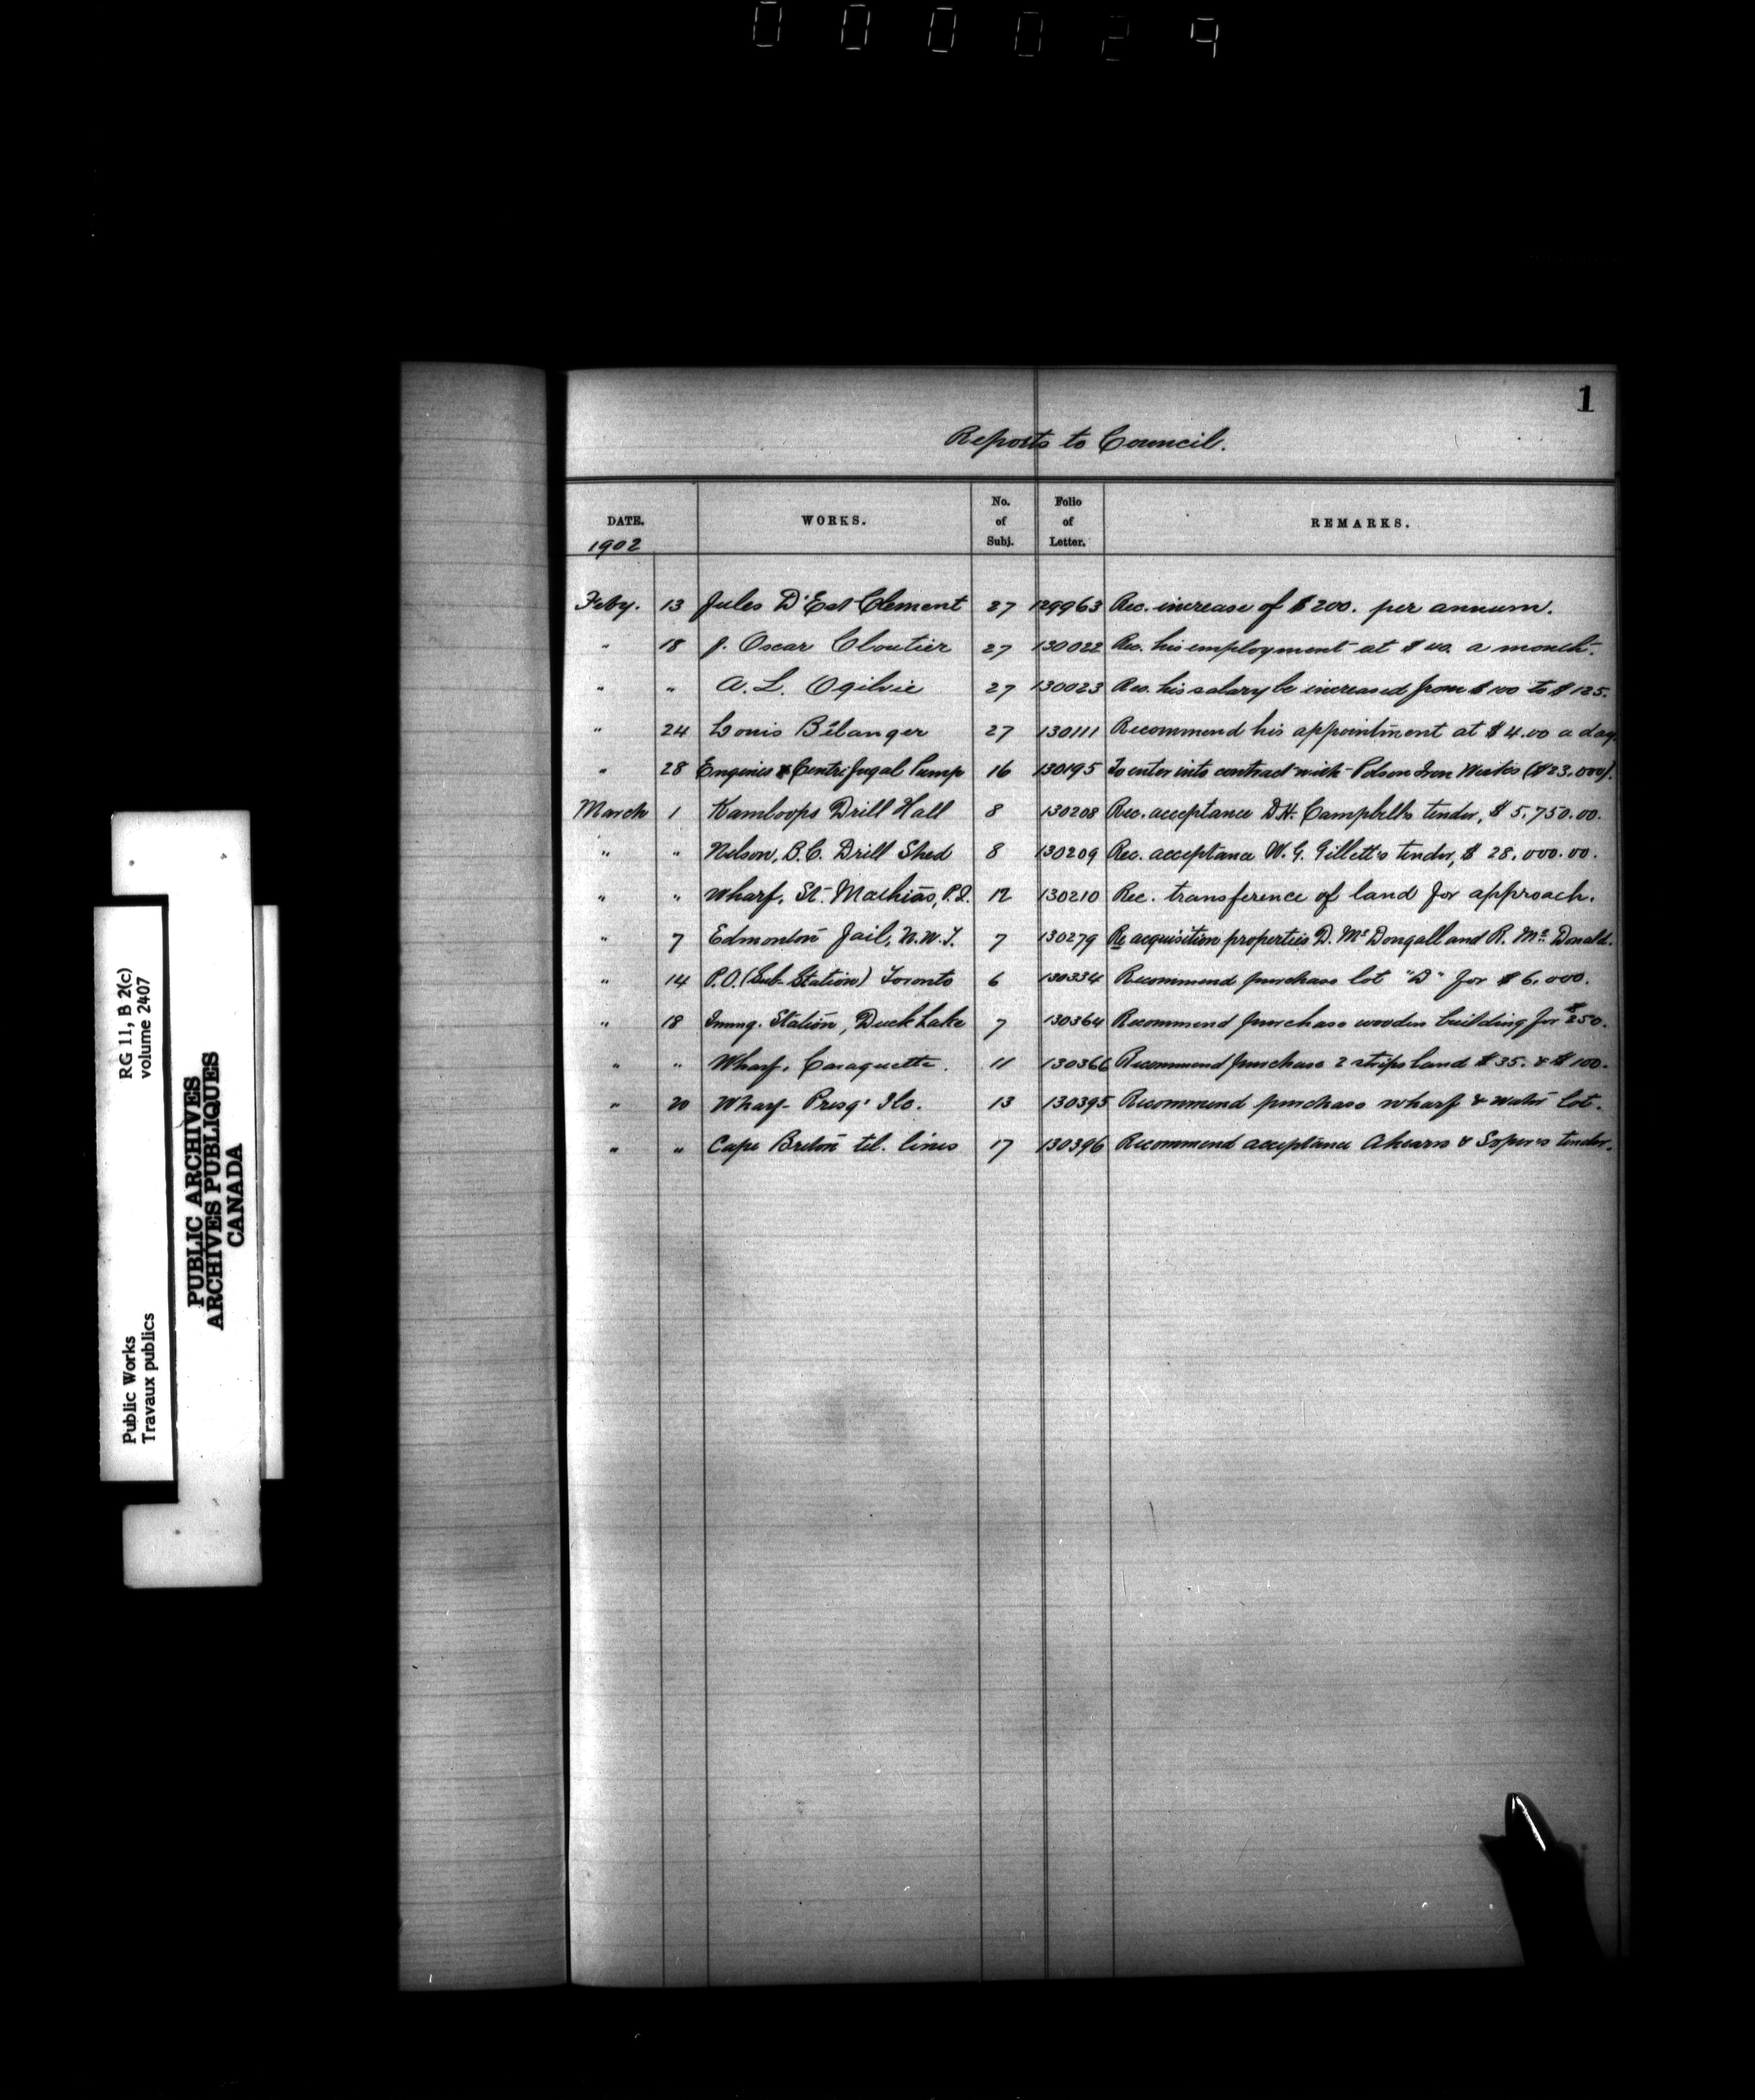 000029
1
Reports to Council.
DATE. WORKS. No. of Subj. Folio of Letter. REMARKS.
1902
Feby. 13 Jules D'Est Clement 27 129963 Rec. increase of $200. per annum.
" 18 J. Oscar Cloutier 27 130022 Rec. his employment at $ a month.
" " A. L. Ogilvie 27 130023 Rec. his salary be increased from $100 to $125.
" 24 Louis Bélanger 27 130111 Recommend his appointment at $4.00 a day
" 28 Engines & Centrifugal Pump 16 130195 To enter into contract with Polson Iron Works ($23,000).
March 1 Kamloops Drill Hall 8 130208 Rec. acceptance D.H. Campbell's tender, $5,750.00.
" " Nelson, B.C. Drill Shed 8 130209 Rec. acceptance W. G. Gillett's tender, $28,000.00.
" " Wharf, St. Mathias, P.Q. 12 130210 Rec. transference of land for approach.
" 7 Edmonton Jail, N.W.T. 7 130279 Re acquisition properties D. McDougall and R. McDonald.
" 14 P.O. (Sub-Station) Toronto 6 130334 Recommend purchase lot "D" for $6,000.
" 18 Immg. Station, Duck Lake 7 130364 Recommend purchase wooden building for $250.
" " Wharf, Caraquette. 11 130366 Recommend purchase 2 strips land $35. & $100.
" 20 Wharf- Presq' Ile. 13 130395 Recommend purchase wharf & water lot.
" " Cape Breton tel. lines 17 130396 Recommend acceptance Ahearn & Soper's tender.
RG 11, B 2(c)
volume 2407
Public Works
Travaux publics
PUBLIC ARCHIVES
ARCHIVES PUBLIQUES
CANADA